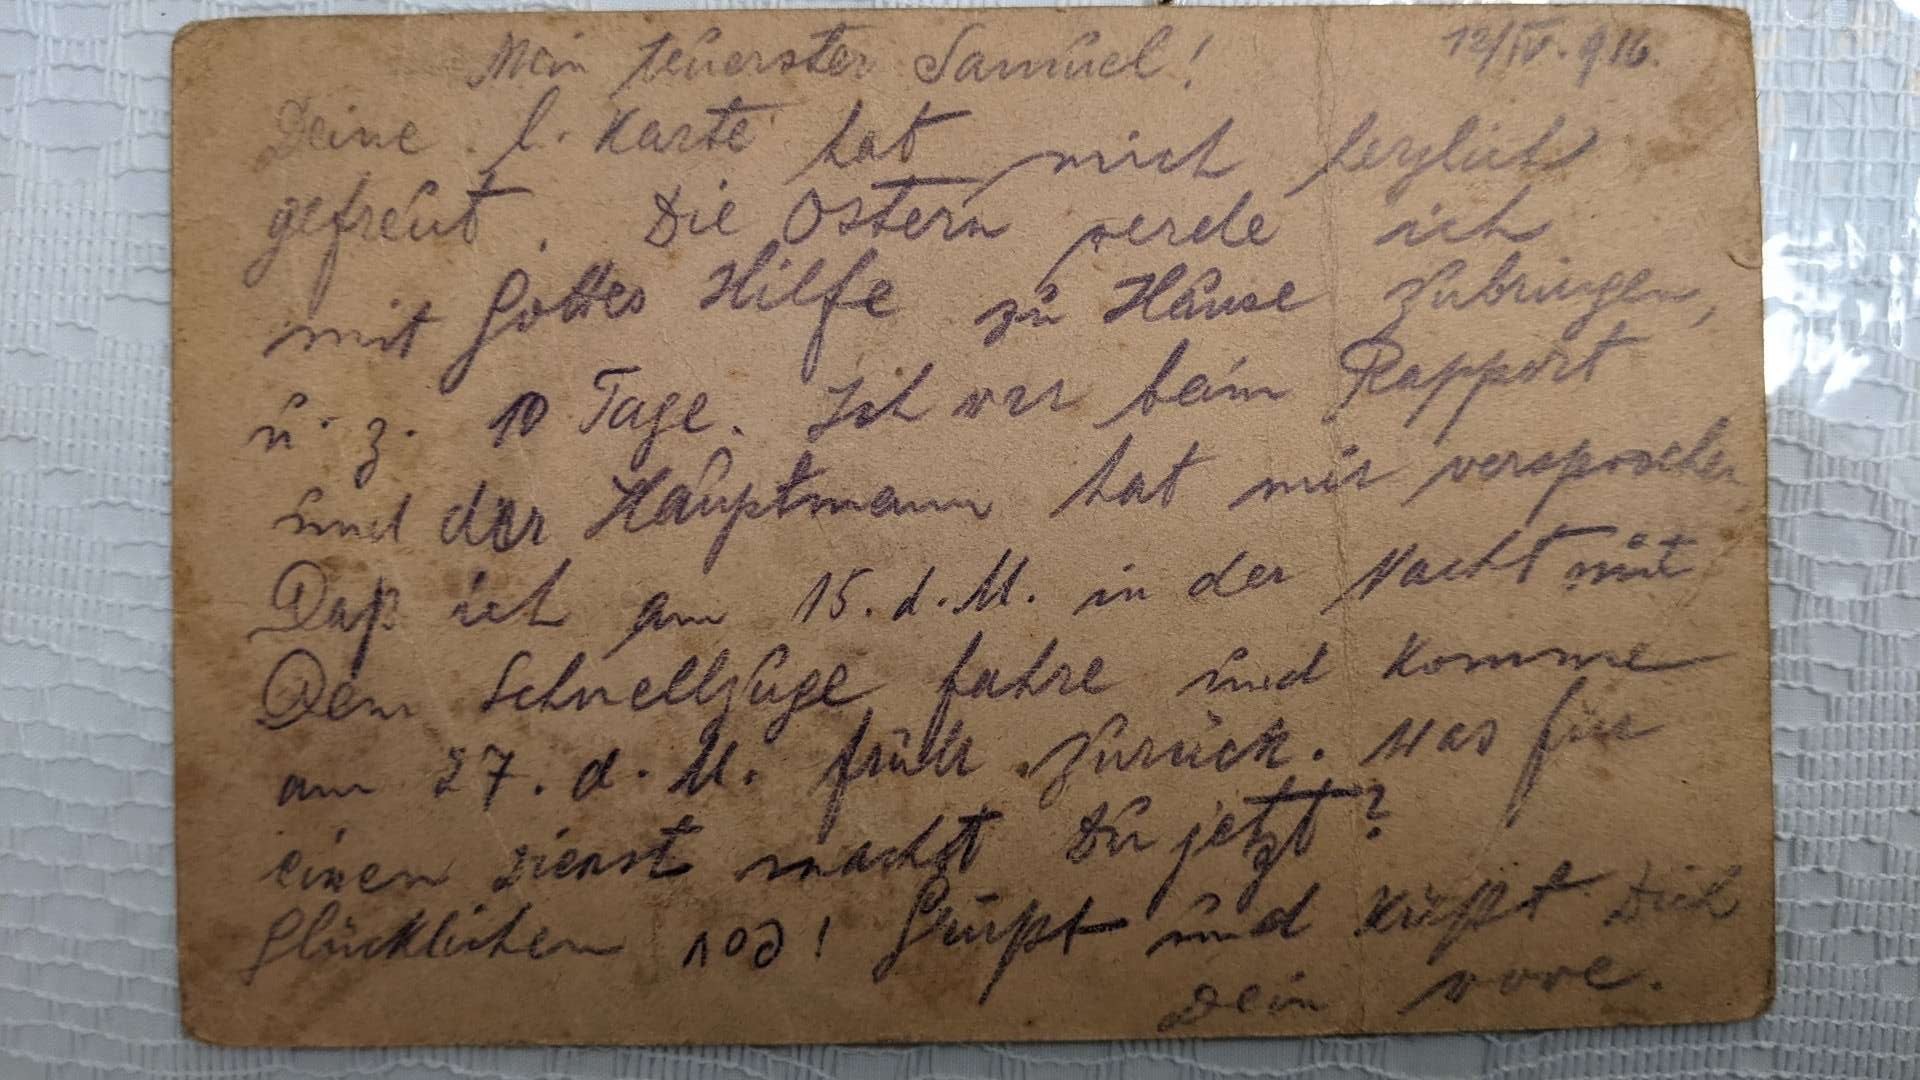 Mein teuerster Samuel! 12/IV. 916.
Deine l. Karte hat mich herzlich
gefreut. Die Ostern werde ich
mit Gottes Hilfe zu Hause zubringen,
u. z. 10 Tage. Ich war beim Rapport
und der Hauptmann hat mir versprochen
Daß ich am 15. d. M. in der Nacht mit
Dem Schnellzuge fahre und komme
am 27. d. M. früh zurück. Was für
einen Dienst machst Du jetzt?
Glücklichen פסח! Grüßt und küßt Dich
Dein